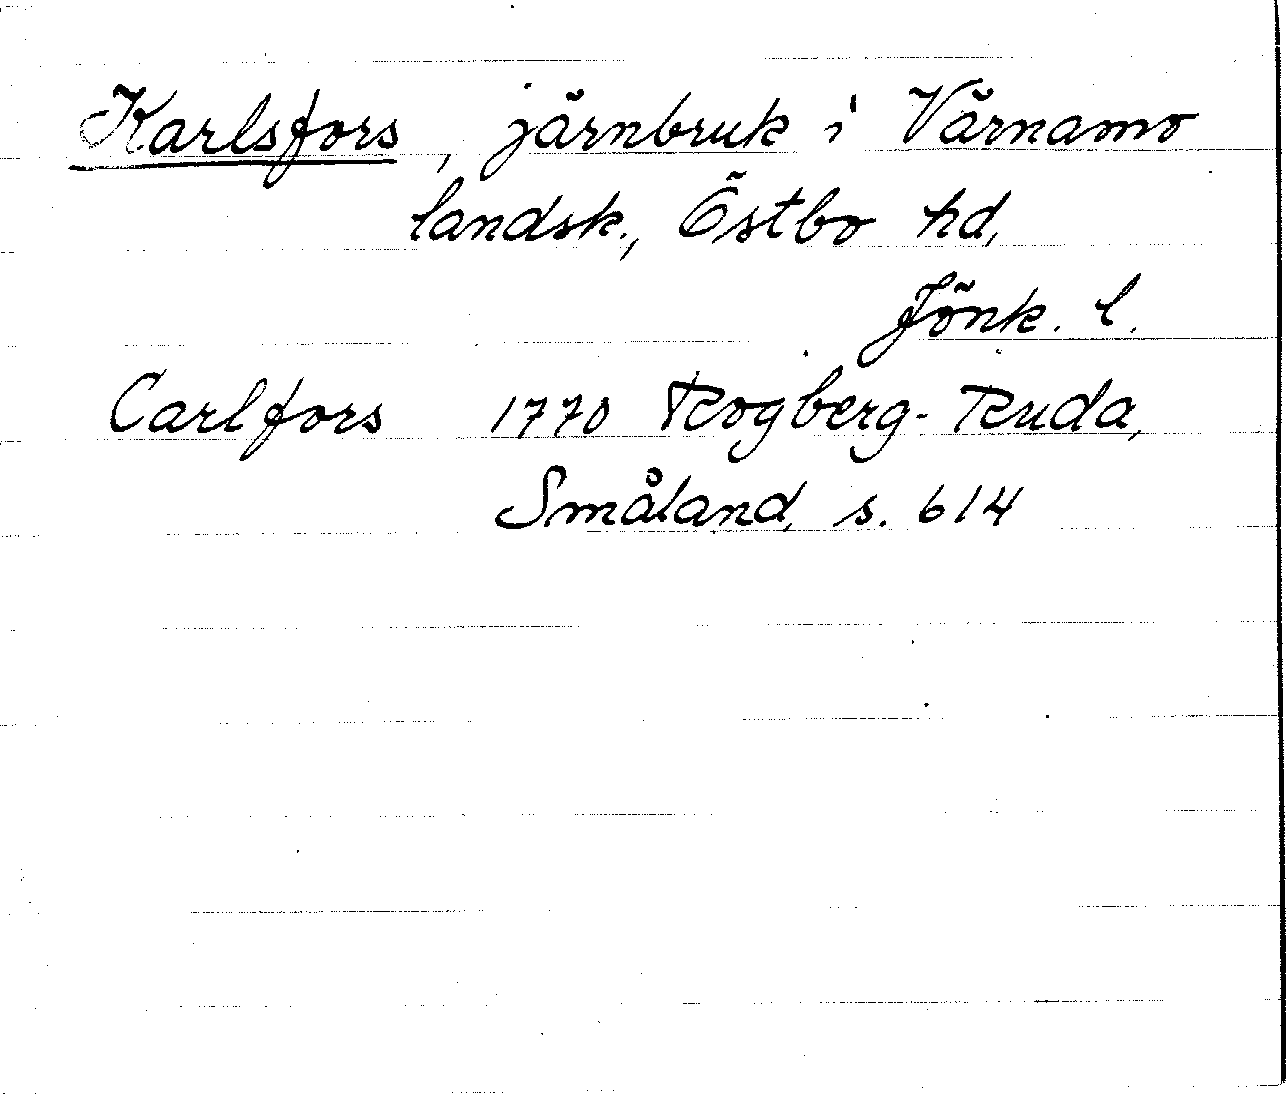 Karlsfors, järnbruk i Värnamo
landsk., Östbo hd,
Jönk. l.
Carlfors 1770 Rogberg-Ruda,
Småland, s. 614